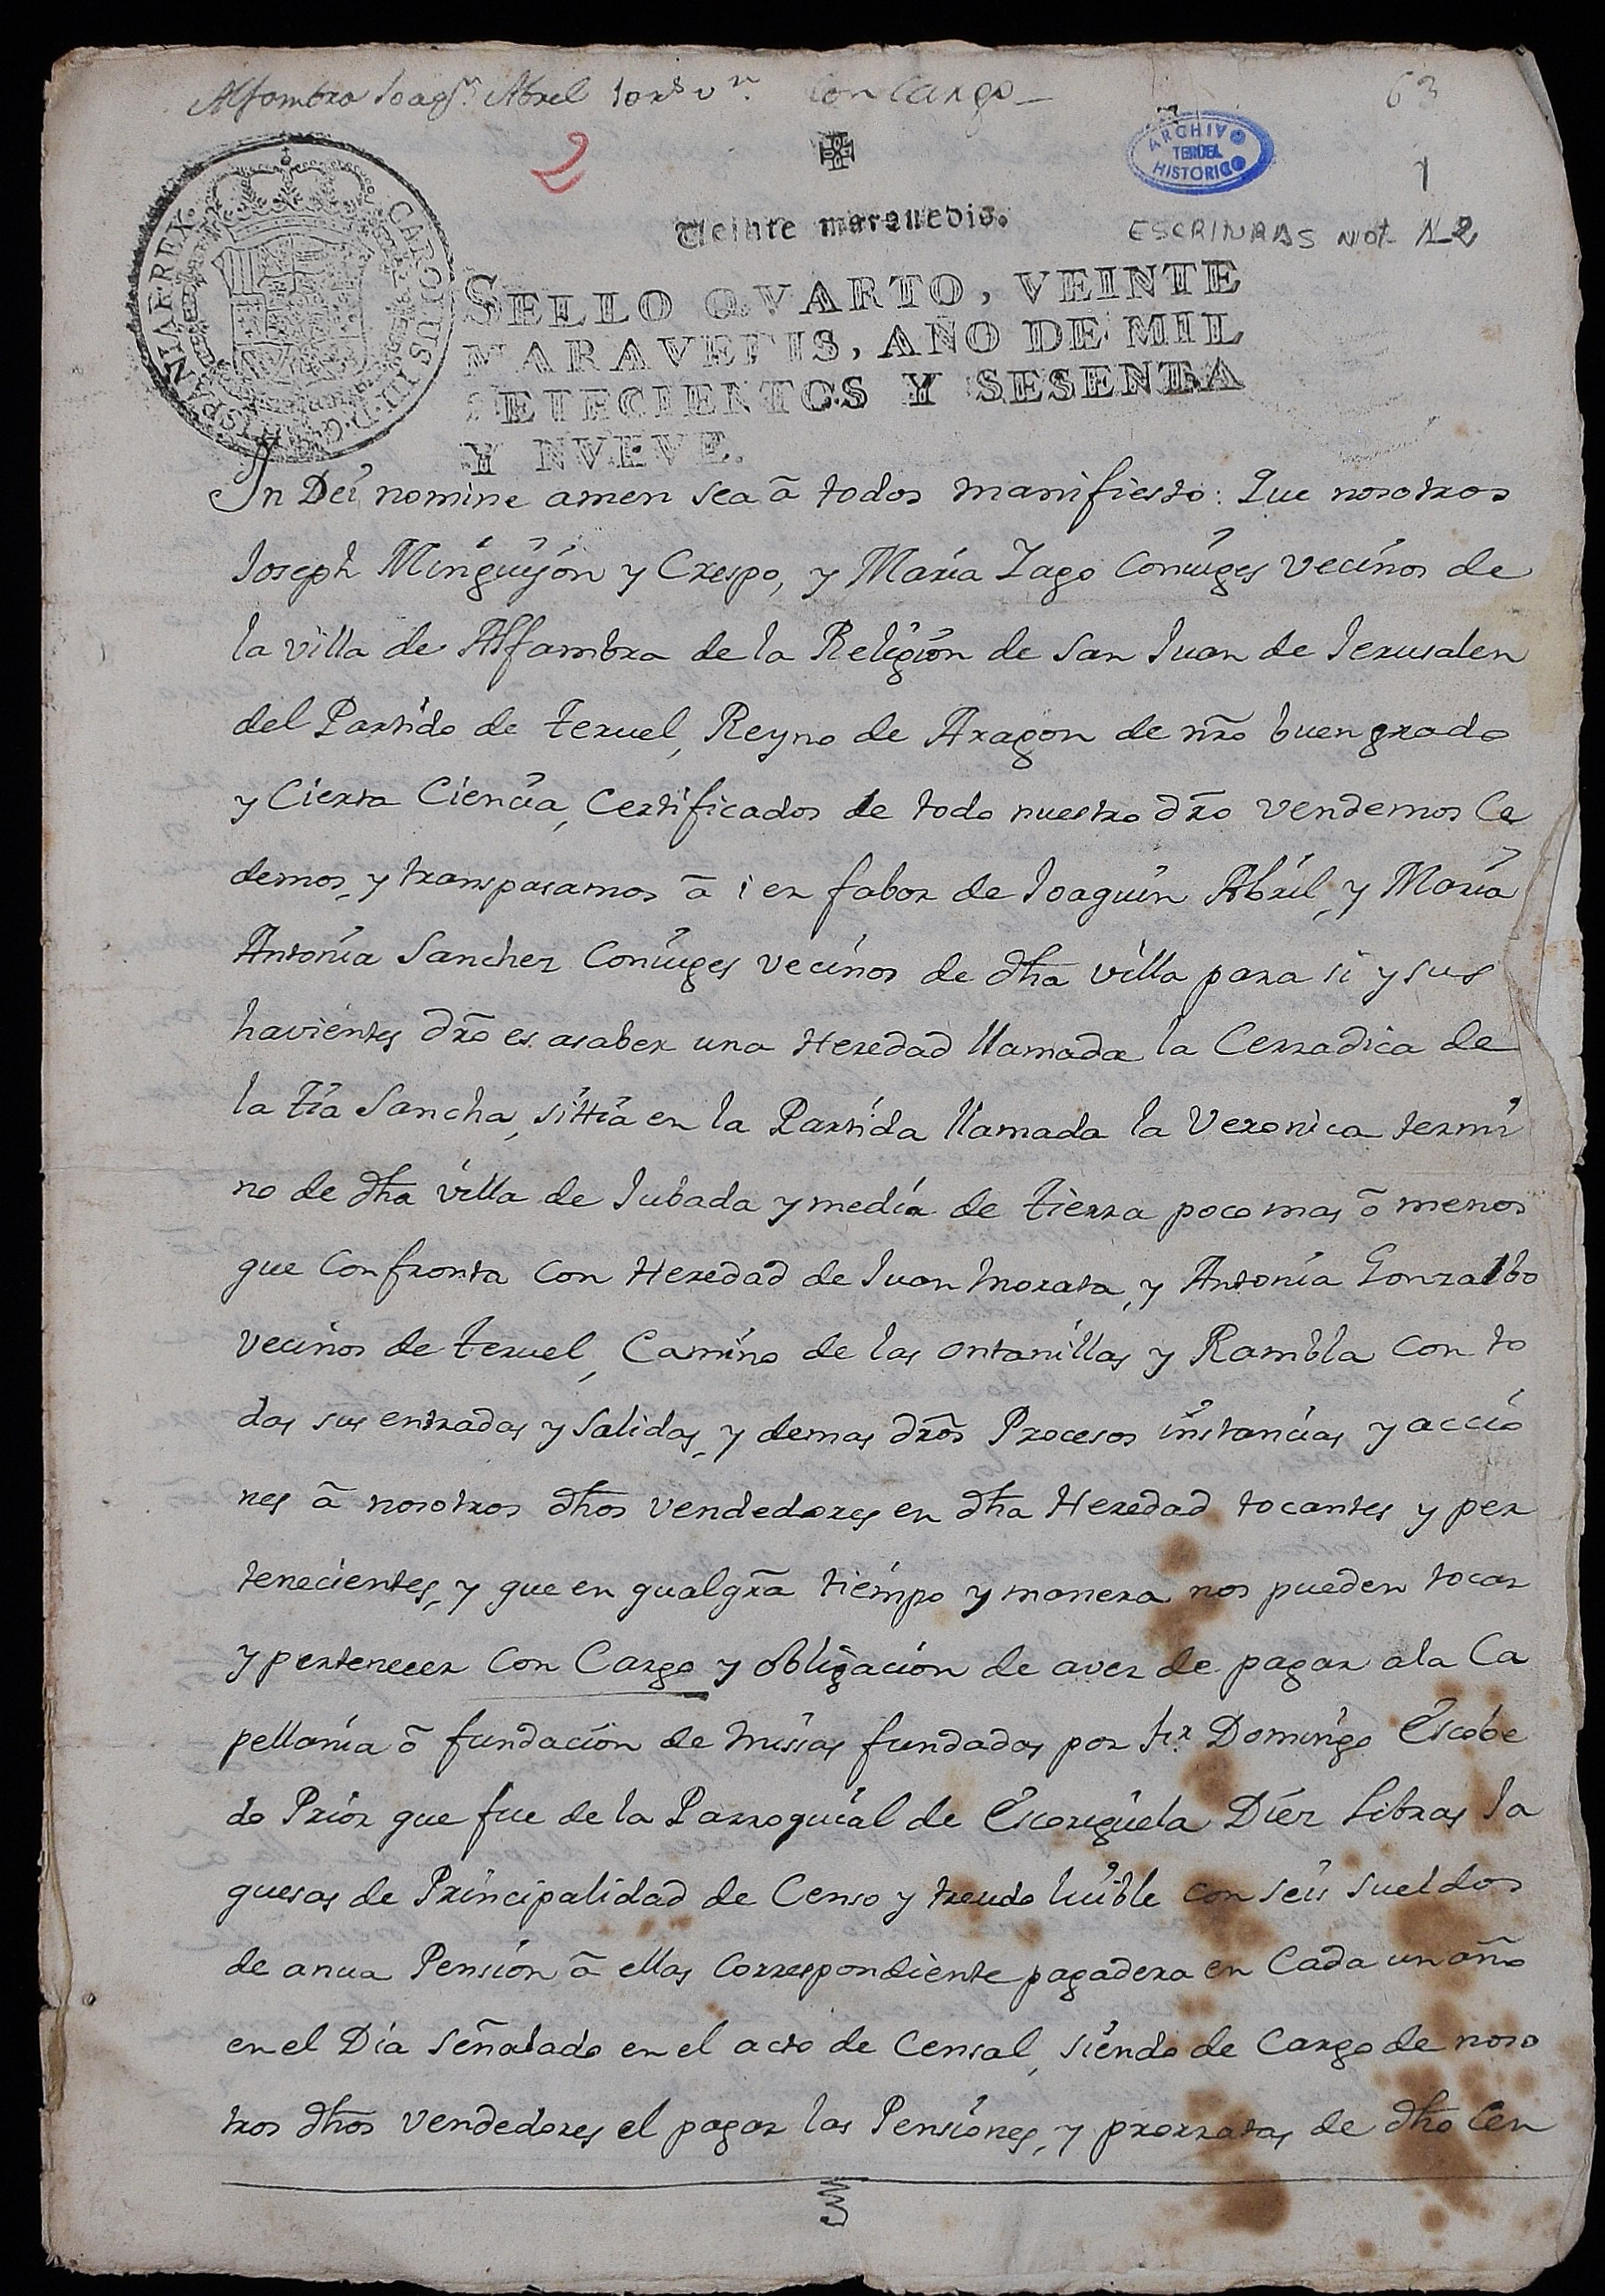 Alfambra Joaqn. Abril
Con Cargo
63
2
ARCHIVO
TERUEL
HISTORICO
1
Veinte marauedis.
ESCRITURAS Not. N-2
CAROLUS III D.G. HISPANIAR. REX
SELLO QVARTO, VEINTE
MARAVEDIS, AÑO DE MIL
SETECIENTOS Y SESENTA
Y NVEVE.
In Dei nomine amen sea â todos manifiesto: Que nosotros
Joseph Minguijón y Crespo, y María Yago Coniuges vecinos de
la villa de Alfambra de la Religión de San Juan de Jerusalen
del Partido de teruel, Reyno de Aragon de nr̃o buen grado
y Cierta Ciencia, Certificados de todo nuestro dr̃o vendemos Ce
demos, y transpasamos â i en fabor de Joaquin Abril, y María
Antonia Sanchez Coniuges vecinos de dha villa para si y sus
havientes dr̃o es asaber una Heredad llamada la Cerradica de
la tía Sancha, sittia en la Partida llamada la Veronica termi
no de dha villa de Jubada y media de tierra poco mas ô menos
que Confronta con Heredad de Juan Morata, y Antonia Gonzalbo
vecinos de teruel, Camino de las ontanillas y Rambla con to
das sus entradas y Salidas, y demas dr̃os Procesos instancias y accio
nes â nosotros dhos vendedores en dha Heredad tocantes y per
tenecientes, y que en qualqr̃a tiempo y manera nos pueden tocar
y pertenecer Con Cargo y obligación de aver de pagar ala Ca
pellanía ô fundación de Missas fundadas por fr. Domingo Escobe
do Prior que fue de la Parroquial de Escorigüela Diez Libras Ja
quesas de Principalidad de Censo y treudo luible con seis sueldos
de anua Pensión â ellas Correspondiente pagadera en Cada un año
en el Día Señalado en el acto de Censal, siendo de Cargo de noso
tros dhos vendedores el pagar las Pensiones, y prorratas de dho Cen